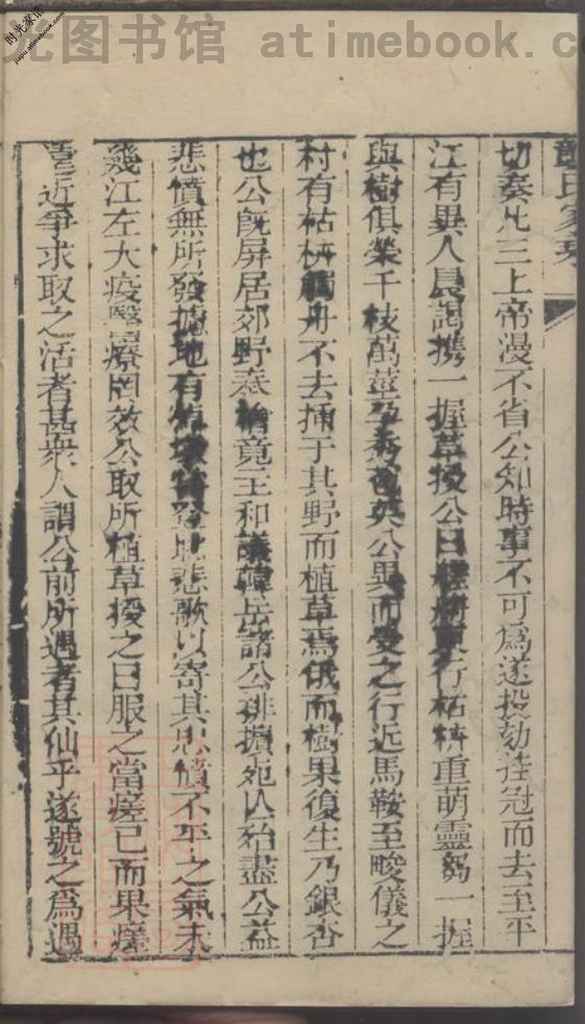 光图书馆 atimebook.c
时光家谱
氏家乘
切奏凡三上帝漫不省公知時事不可爲遂投劾挂冠而去至平
江有異人晨謁攜一握草授公曰行枯枿重萌靈芻一握
與樹俱榮千枝萬莖孕秀苞英公異而受之行近馬鞍至畯儀之
村有枯枿觸舟不去插于其野而植草焉俄而樹果復生乃銀杏
也公旣屏居郊野秦檜竟主和議韓岳諸公排擯死亾殆盡公益
悲憤無所發攄地有登此悲歌以寄其忠憤不平之氣未
幾江左大疫醫療罔效公取所植草授之曰服之當瘥已而果瘥
遠近爭求取之活者甚衆人謂公前所遇者其仙乎遂號之爲遇